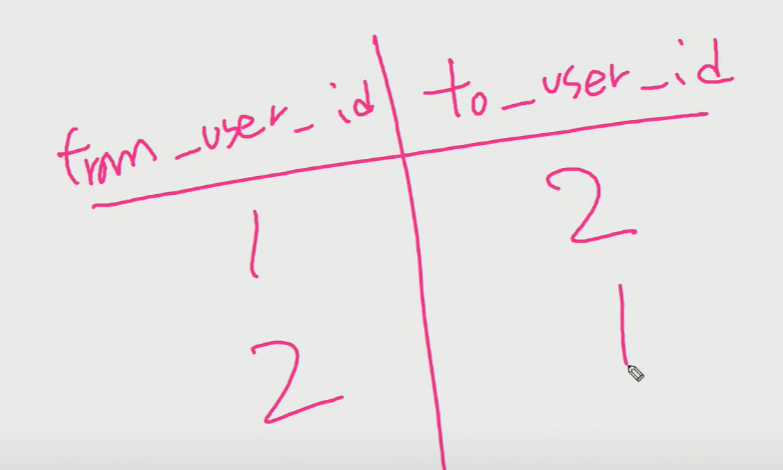 from_user_id to_user_id
1 2
2 1